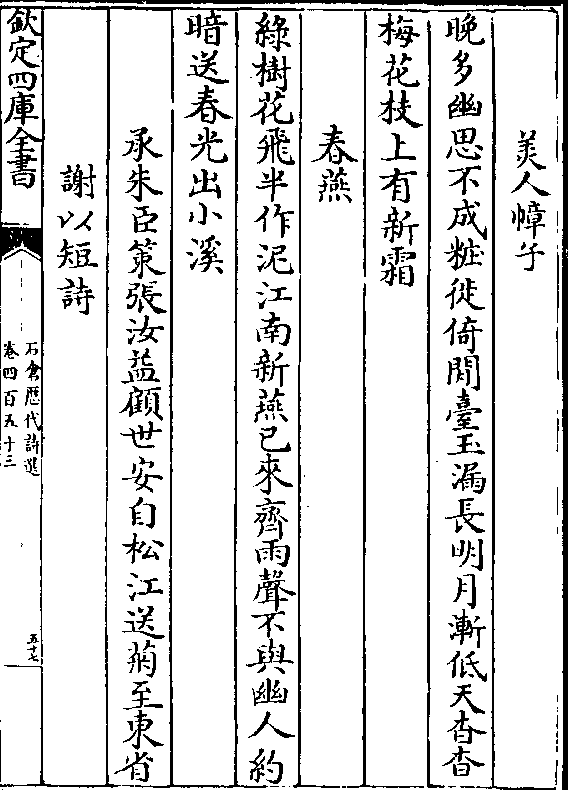 美人幛子
晚多幽思不成粧徙倚閒臺玉漏長明月漸低天杳杳
梅花枝上有新霜
春燕
綠樹花飛半作泥江南新燕已來齊雨聲不與幽人約
暗送春光出小溪
承朱臣策張汝益顧世安自松江送菊至東省
謝以短詩
欽定四庫全書
石倉歷代詩選
卷四百五十三
五十七